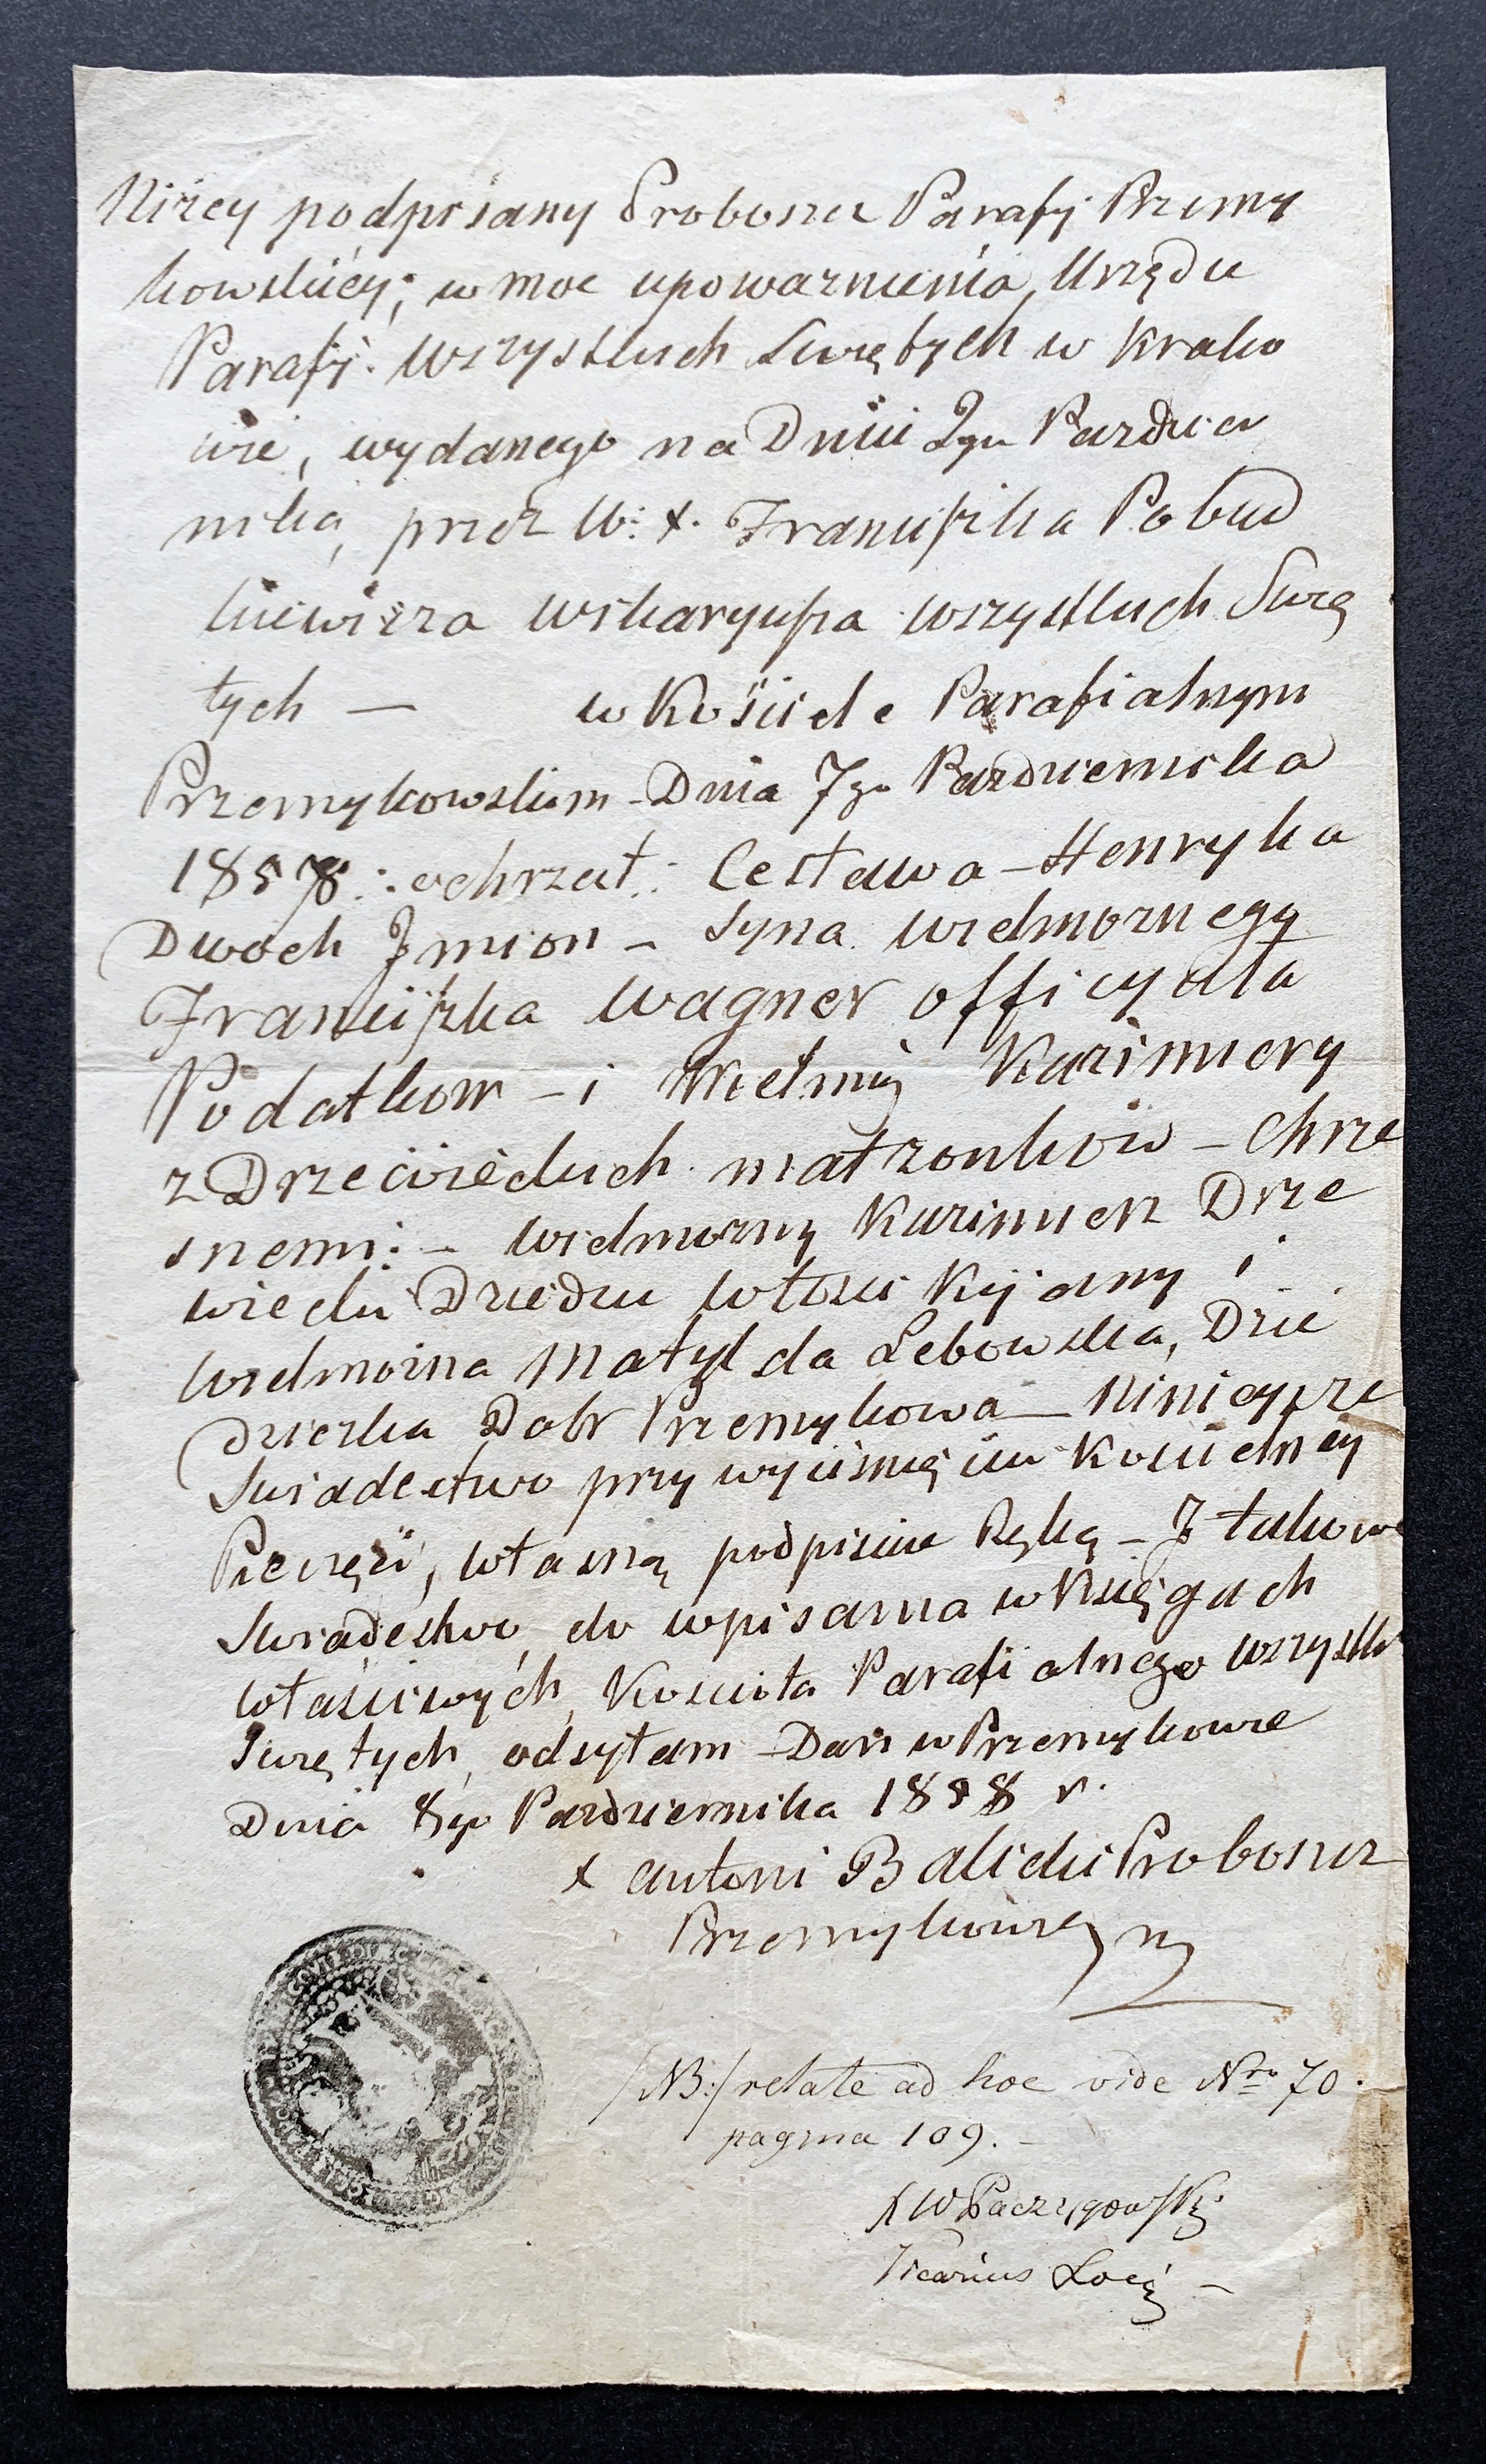 Niżey podpisany Proboszcz Parafij Przemy
kowskiéy; w moc upoważnienia Urzędu
Parafij. Wszystkich Swiętych w Krako
wie, wydanego na Dniu 2go Pazdzier
nika, przez W: X. Franciszka Pobud
kiewicza Wikaryusza wszystkich Swię
tych — w Kościele Parafialnym
Przemykowskim - Dnia 7go Pazdziernika
1858 : ochrzcił : Cesława - Henryka
Dwoch Jmion - Syna Wielmożnego
Franciszka Wagner officyała
Podatkow - i Wielmży Kazimiery
z Drzewieckich małżonków - Chrze
snemi : - Wielmożny Kazimierz Drze
wiecki Dziedzic Włości Kijany i
Wielmożna Matylda Łebowska, Dzie
dziczka Dobr Przemykowa - Ninieysze
Swiadectwo przy wyciśnięciu Kościelnéy
Pieczęci, własną podpisuie Ręką - J takowe
Swiadectwo do wpisania w Księgach
właściwych Kościoła Parafialnego wszystk
Swiętych odsyłam - Dan w Przemykowie
Dnia 8go Pazdziernika 1858 r.
X Antoni Balicki Proboszcz
Przemykows
/NB:/ relate ad hoc vide Nro 70.
pagina 109. -
X W Paczygowski
Vicarius Loci -